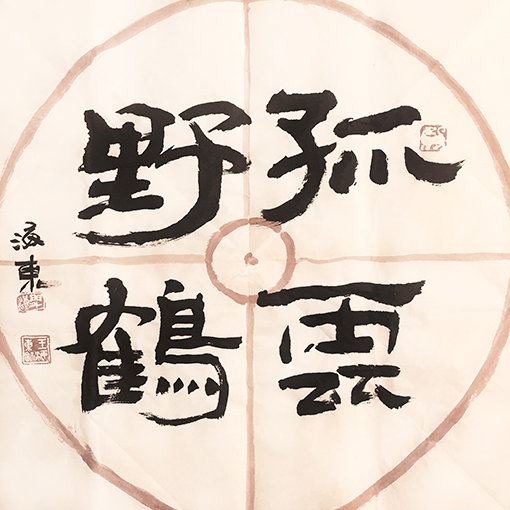 孤雲
野鶴
海東